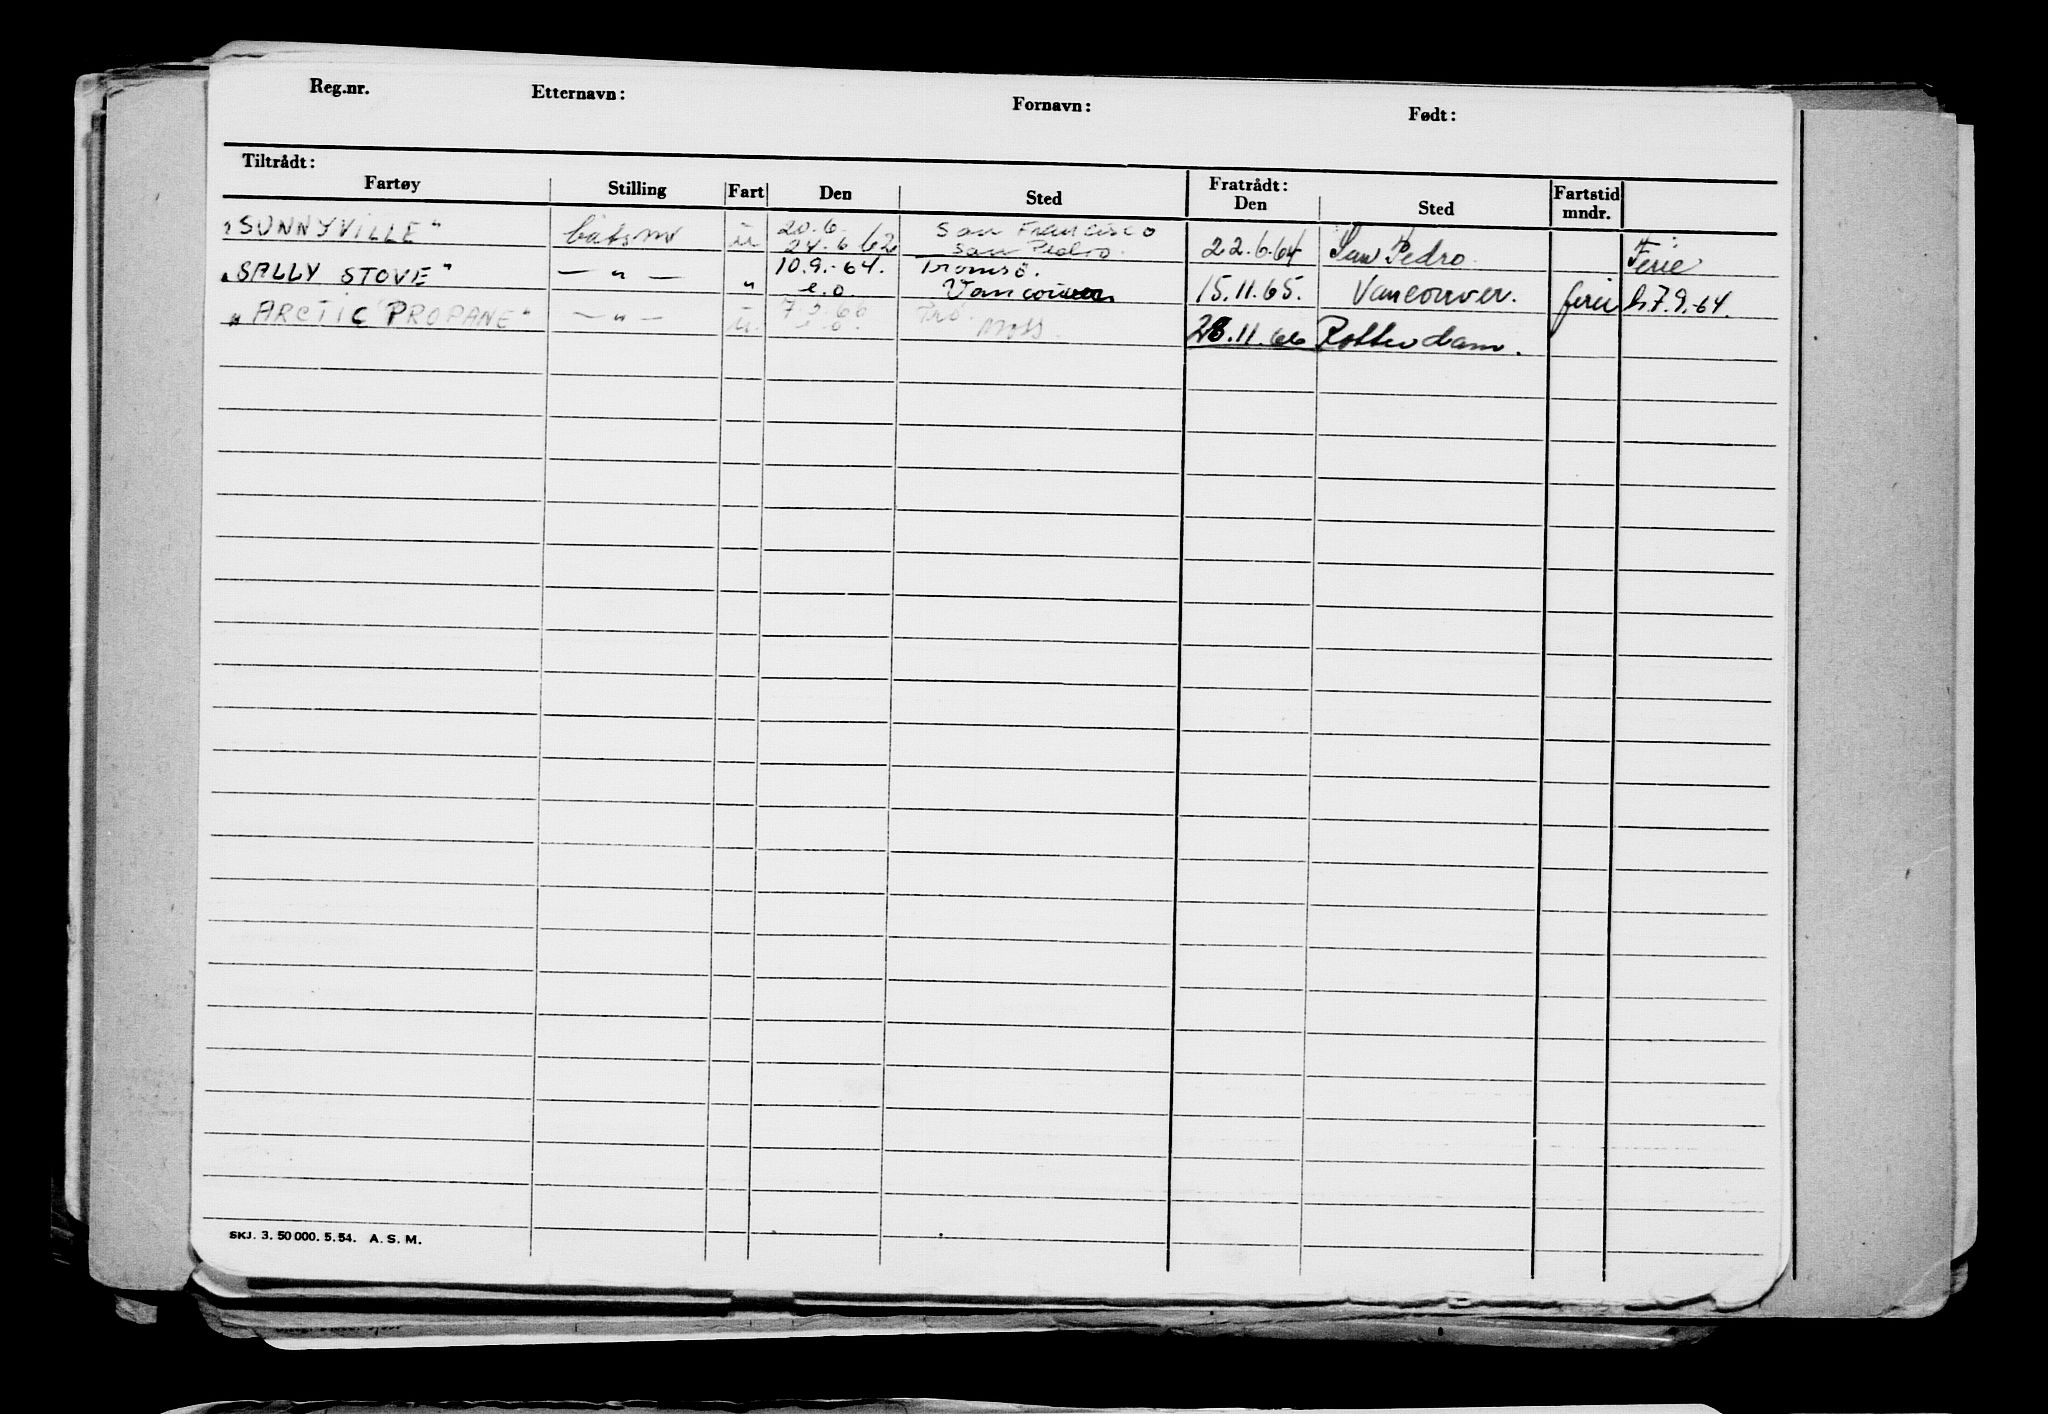 Reg.nr. Etternavn: Fornavn: Født:
Tiltrådt: Fratrådt:
Fartøy Stilling Fart Den Sted Den Sted Fartstid mndr.
20.6. San Francisco
"SUNNYVILLE" båtsm u 24.6 62 San Pedro. 22.6.64 San Pedro. Ferie
10.9.-64. Tromsö.
"SALLY STOVE" — " — " e.o. Vancouver 15.11.65. Vancouver. ferie h.7.9.-64.
"ARCTIC PROPANE" — " — u. Moss. 28.11.66 Rotterdam.
SKJ. 3. 50 000. 5. 54. A. S. M.